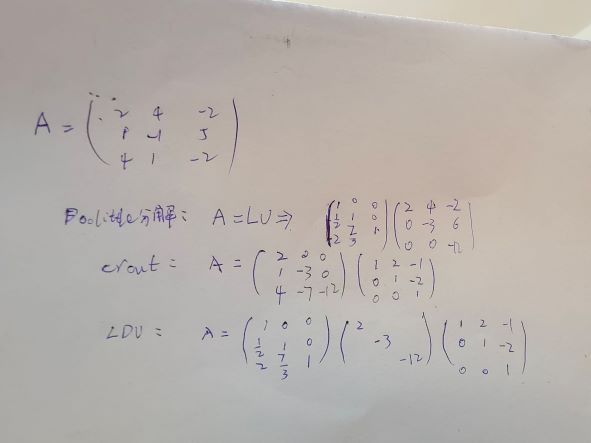 A = ( 2 4 -2
1 -1 5
4 1 -2 )
Doolittle分解: A = LU ⇒ ( 1 0 0
1/2 1 0
2 7/3 1 ) ( 2 4 -2
0 -3 6
0 0 -12 )
crout: A = ( 2 0 0
1 -3 0
4 -7 -12 ) ( 1 2 -1
0 1 -2
0 0 1 )
LDU: A = ( 1 0 0
1/2 1 0
2 7/3 1 ) ( 2
-3
-12 ) ( 1 2 -1
0 1 -2
0 0 1 )